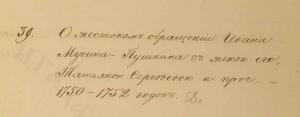 39. О жестокомъ обращеніи Ивана
Мусина-Пушкина съ женою его,
Татьяною Сергѣевою и проч. —
1750-1752 годовъ.